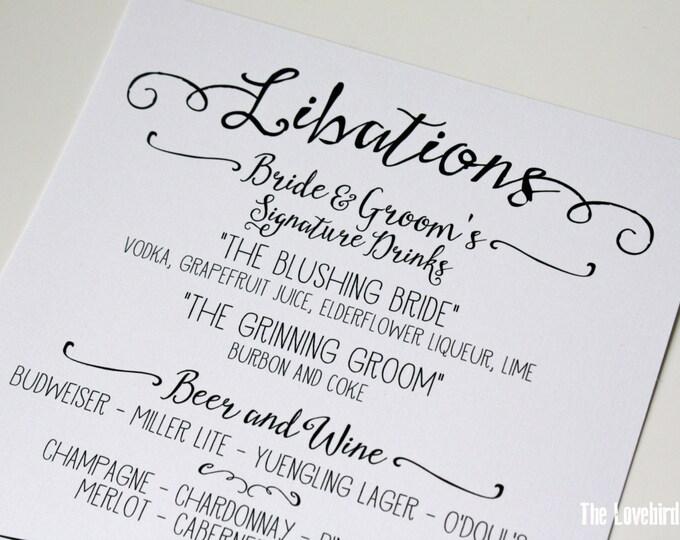 Libations
Bride & Groom's
Signature Drinks
"THE BLUSHING BRIDE"
VODKA, GRAPEFRUIT JUICE, ELDERFLOWER LIQUEUR, LIME
"THE GRINNING GROOM"
BURBON AND COKE
Beer and Wine
BUDWEISER - MILLER LITE - YUENGLING LAGER - O'DOUL'S
CHAMPAGNE - CHARDONNAY -
MERLOT -
The Lovebird